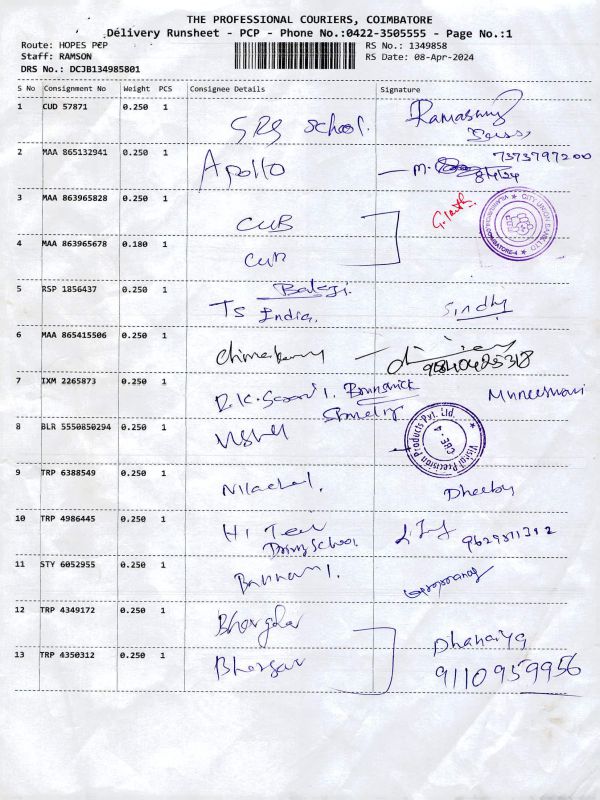 THE PROFESSIONAL COURIERS, COIMBATORE
Délivery Runsheet - PCP - Phone No.:0422-3505555 - Page No.:1
Route: HOPES PCP RS No.: 1349858
Staff: RAMSON RS Date: 08-Apr-2024
DRS No.: DCJB134985801
S No Consignment No Weight PCS Consignee Details Signature
1 CUD 57871 0.250 1 SRS School. Ramasamy
2 MAA 865132941 0.250 1 Apollo M. 7373797200
3 MAA 863965828 0.250 1 CUB
CITY UNION BANK LTD
4 MAA 863965678 0.180 1 CUB
5 RSP 1856437 0.250 1 Balaji TS India. Sindhy
6 MAA 865415506 0.250 1 9840425318
7 IXM 2265873 0.250 1 Brunswick Muneeswari
8 BLR 5550850294 0.250 1 Vishal
Vishal Precision Products Pvt. Ltd. CBE - 4
9 TRP 6388549 0.250 1 Nilachal.
10 TRP 4986445 0.250 1 Hi Tech Driving School 9629811312
11 STY 6052955 0.250 1 Bannari.
12 TRP 4349172 0.250 1
13 TRP 4350312 0.250 1 Dhanaiya
9110959956